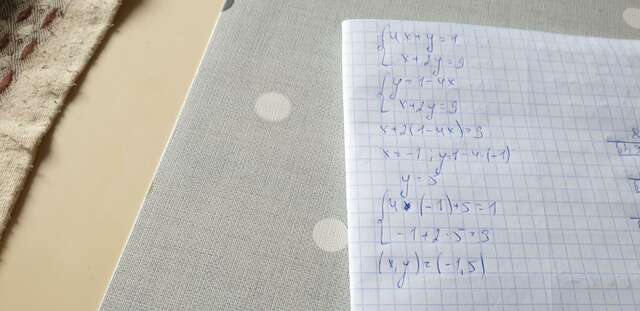 4x+y=1
x+2y=9
y=1-4x
x+2y=9
x+2(1-4x)=9
x=-1, y=1-4·(-1)
y=5
4·(-1)+5=1
-1+2·5=9
(x,y)=(-1,5)